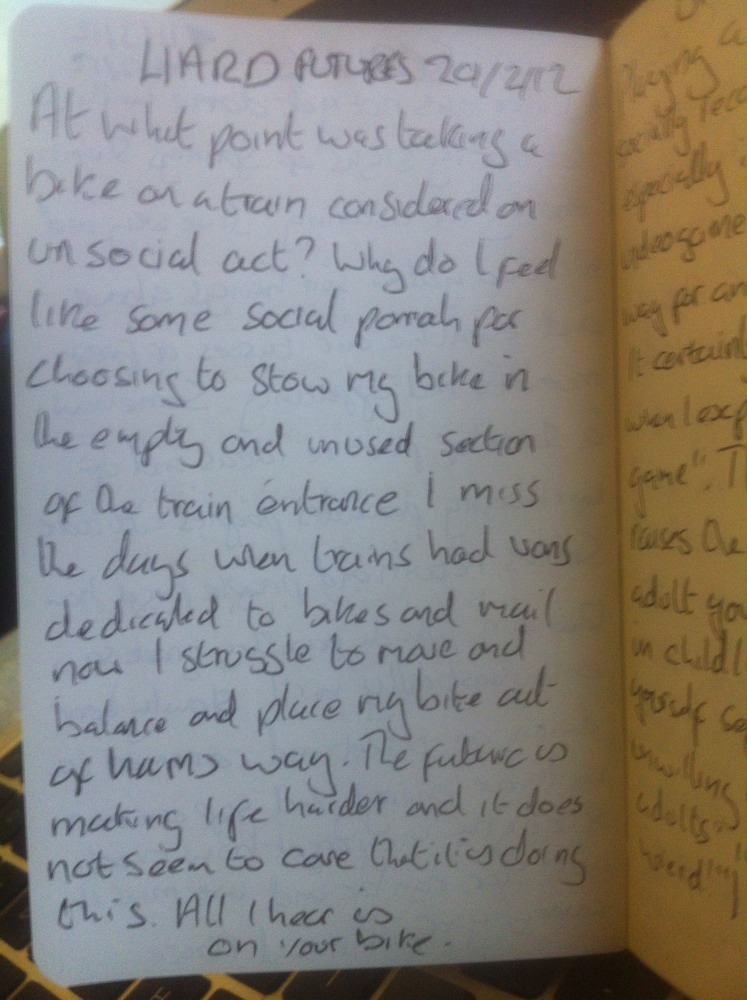 LIARD FUTURES 20/2/12
At what point was taking a
bike on a train considered an
unsocial act? Why do I feel
like some social pariah for
choosing to stow my bike in
the empty and unused section
of the train entrance I miss
the days when trains had vans
dedicated to bikes and mail
now I struggle to move and
balance and place my bike out
of harms way. The future is
making life harder and it does
not seem to care that it is doing
this. All I hear is
on your bike.
Playing a
socially
especially
videogame
way for an
It certainl
when I exp
game". T
raises the
adult you
in child
yourself se
unwilling
adults